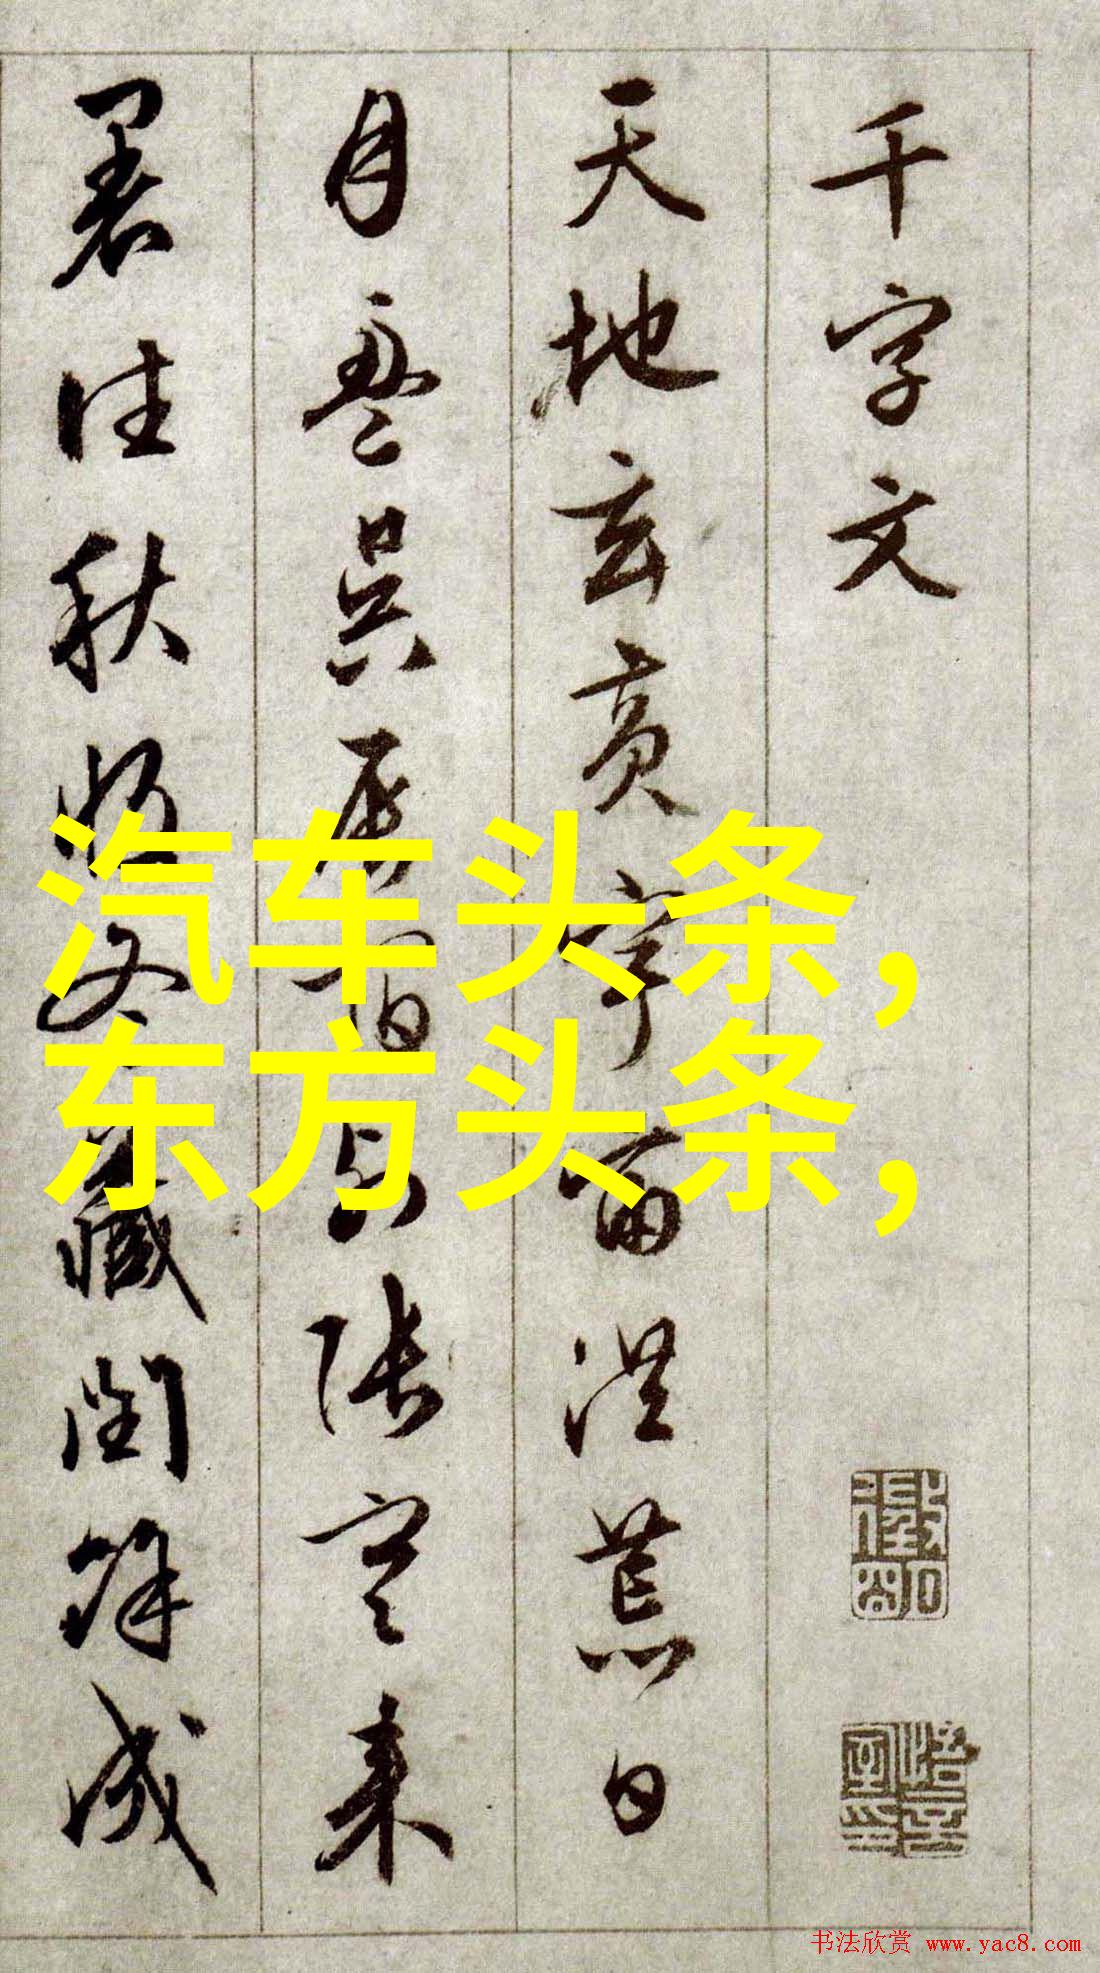 千字文
天地玄黄宇宙洪荒日
月盈昃辰宿列张寒来
暑往秋收冬藏闰馀成
汽车头条，
东方头条，
书法欣赏 www.yac8.com